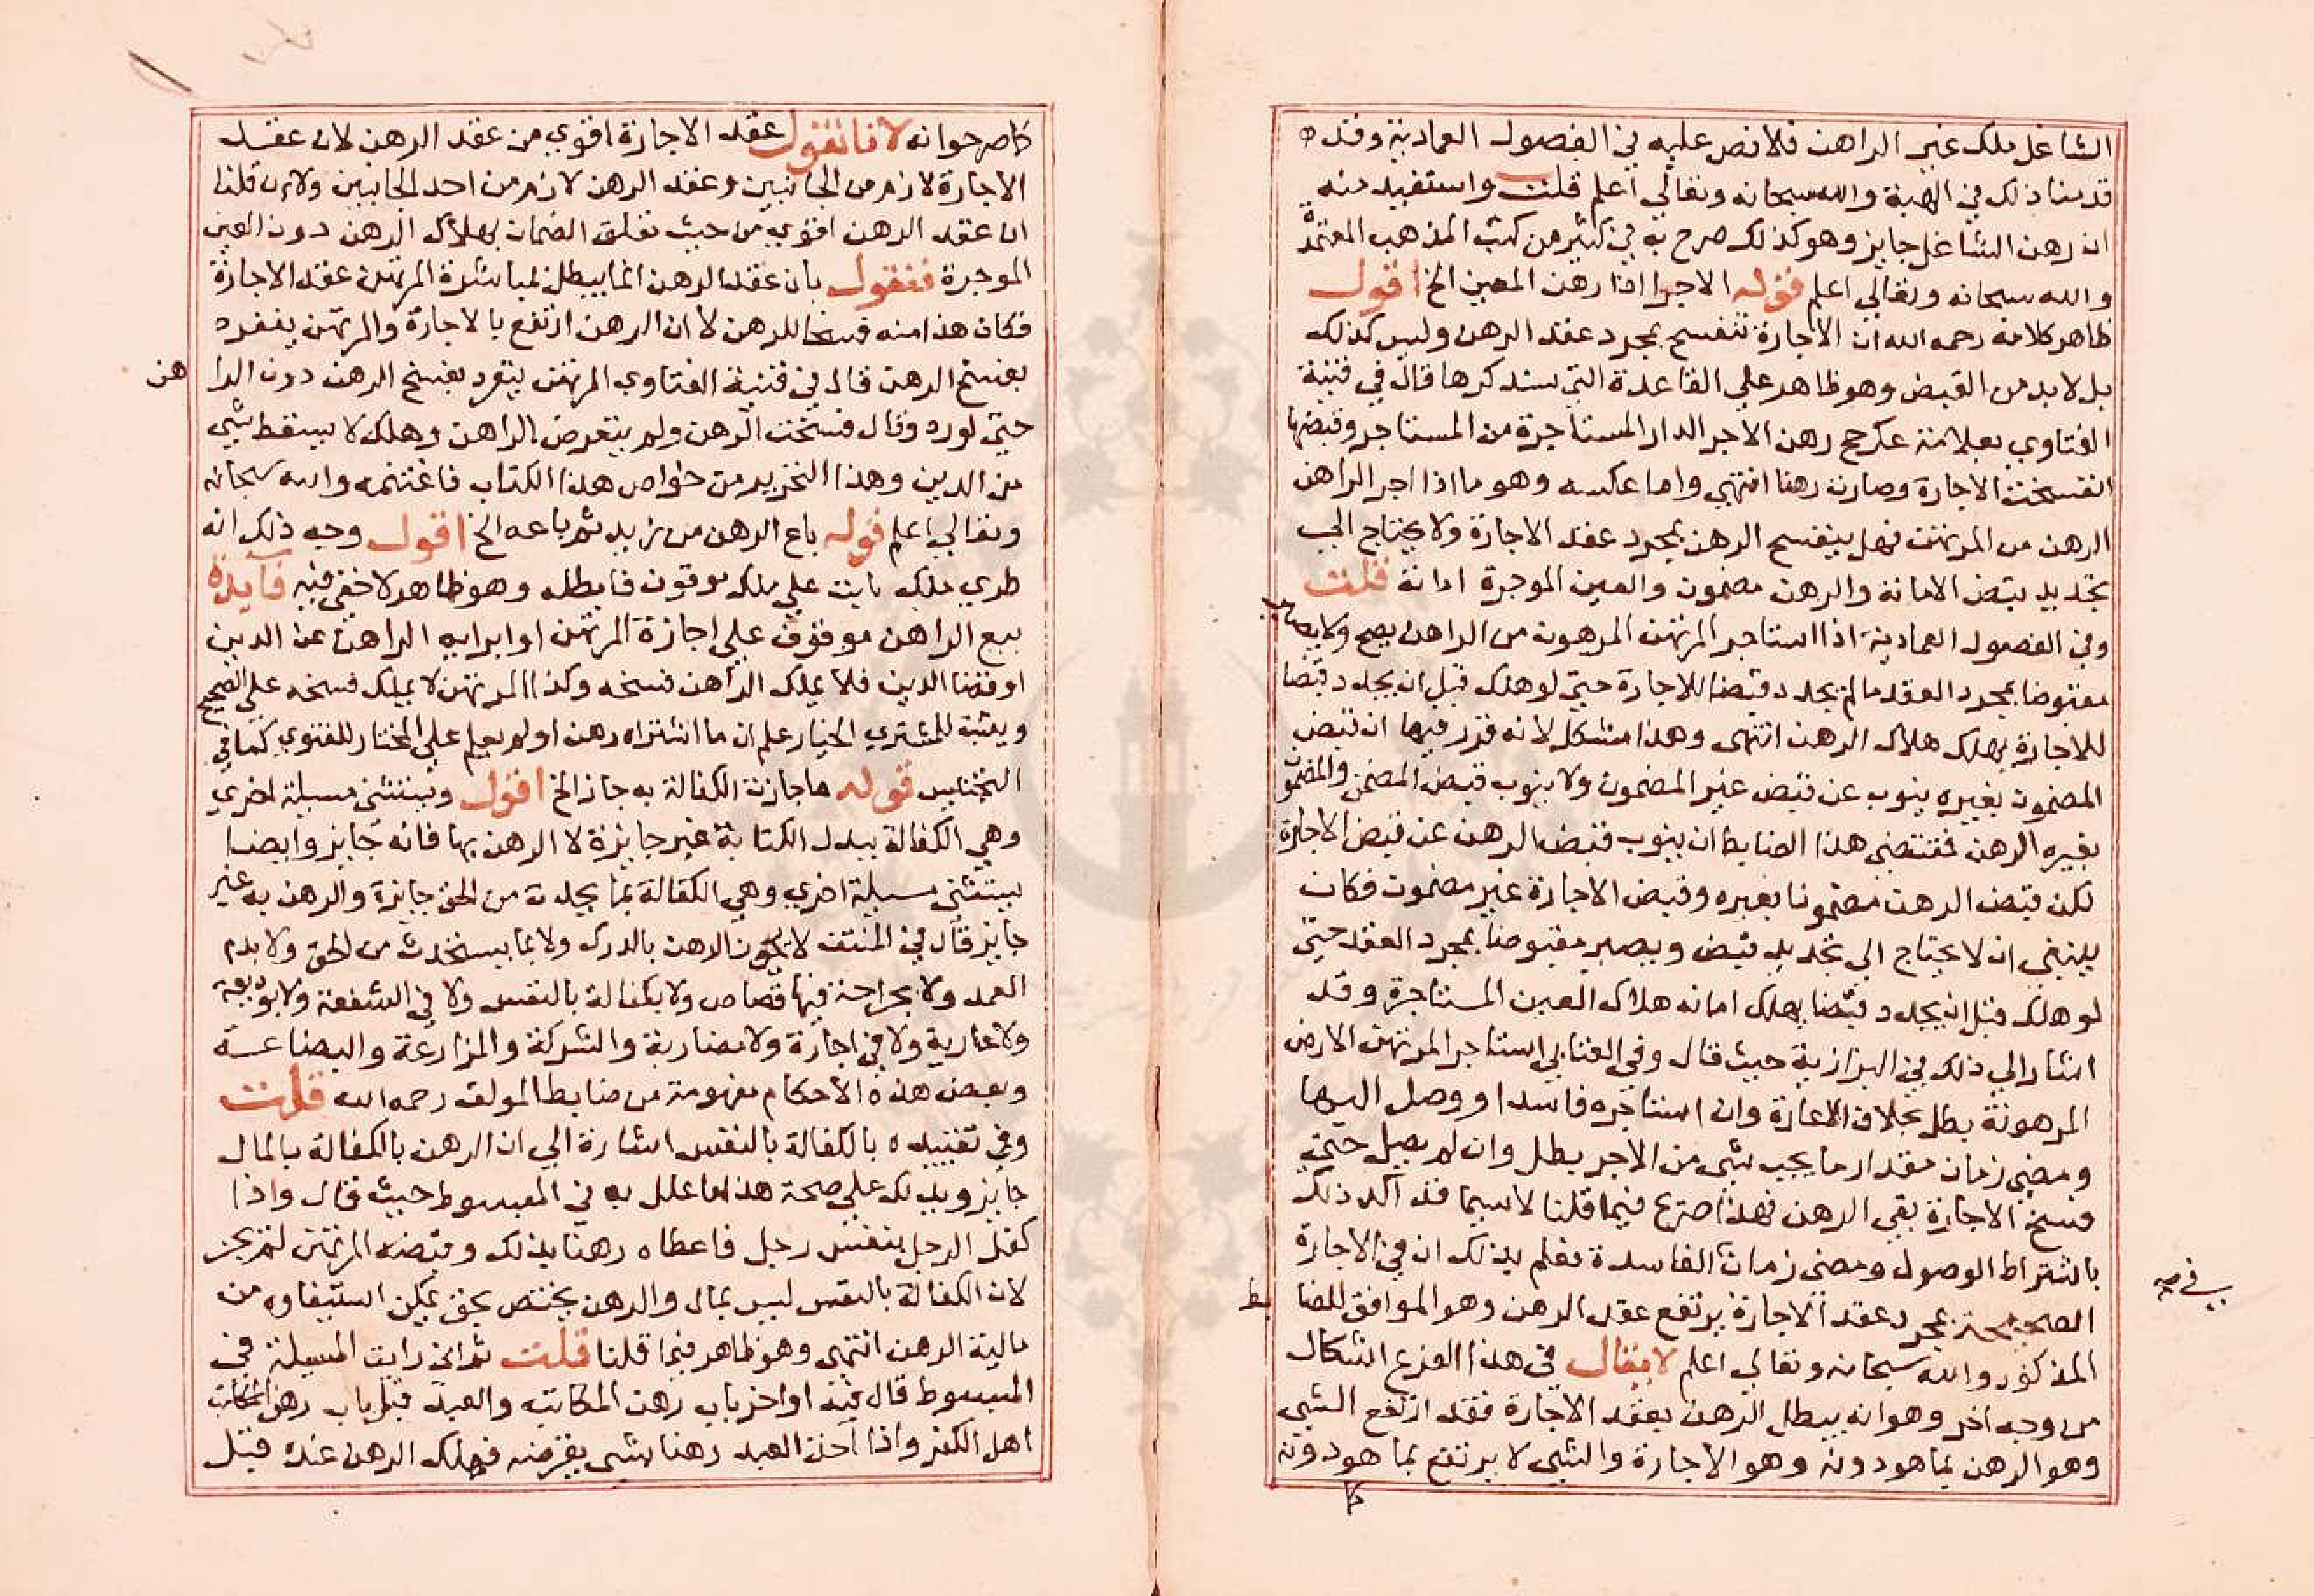 الشاغل ملك غير الراهن فلا نص عليه في الفصول العمادية وقده
قدمنا ذلك في الهبة والله سبحانه وتعالي اعلم قلت واستفيد منه
ان رهن الشاغل جايز وهو كذلك صرح به في كثير من كتب المذهب المعتمدة
والله سبحانه وتعالي اعلم قوله الاجرا اذا رهن المعين الخ اقول
ظاهر كلامه رحمه الله ان الاجارة تنفسخ بمجرد عقد الرهن وليس كذلك
بل لا بد من القبض وهو ظاهر علي القاعدة التي سنذكرها قال في قنية
الفتاوي بعلامة عك رجح رهن الاجر الدار المستاجرة من المستاجر وقبضها
انفسخت الاجارة وصارت رهنا انتهي واما عكسه وهو ما اذا اجر الراهن
الرهن من المرتهن فهل ينفسخ الرهن بمجرد عقد الاجارة ولا يحتاج الي
تجديد قبض الامانة والرهن مضمون والعين الموجرة امانة قلت
وفي الفصول العمادية اذا استاجر المرتهن المرهونه من الراهن يصح ولا يصير
مقبوضا بمجرد العقد ما لم يجدد قبضا للاجارة حتي لو هلك قبل ان يجدد قبضا
للاجارة يهلك هلاك الرهن انتهي وهذا مشكل لانه قرر فيها ان قبض
المضمون بغيره ينوب عن قبض غير المضمون ولا ينوب قبض المضمن والمضمون
بغيره الرهن فمقتضي هذا الضابط ان ينوب قبض الرهن عن قبض الاجارة
لكن قبض الرهن مضمونا بغيره وقبض الاجارة غير مضمون فكان
ينبغي ان لا يحتاج الي تجديد قبض ويصير مقبوضا بمجرد العقد حتي
لو هلك قبل ان يجدد قبضا يهلك امانه هلاك العين المستاجرة وقد
اشار الي ذلك في البزازية حيث قال وفي العتابي استاجر المرتهن الارض
المرهونة بطل بخلاف الاعارة وان استاجره فاسدا ووصل اليها
ومضي زمان مقدار ما يجب شي من الاجر بطل وان لم يصل حتي
فسخ الاجارة بقي الرهن فهذا صرع فيما قلنا لا سيما قد اكد ذلك
باشتراط الوصول ومضي زمان الفاسدة فعلم بذلك ان في الاجارة
الصحيحة بمجرد عقد الاجارة يرتفع عقد الرهن وهو الموافق للضا
بط
المذكور والله سبحانه وتعالي اعلم لا يقال في هذا الفرع اشكال
من وجه اخر وهو انه يبطل الرهن بعقد الاجارة فقد ارتفع الشي
وهو الرهن بما هو دونه وهو الاجارة والشي لا يرتفع بما هو دونه
كا
كاصرحوا نه لانا نقول عقد الاجارة اقوي من عقد الرهن لان عقد
الاجارة لازم من الجانبين وعقد الرهن لازم من احد الجانبين ولان قلنا
ان عقد الرهن اقوي من حيث تعلق الضمان بهلاك الرهن دون العين
الموجرة فنقول بان عقد الرهن انما يبطل لمباشرة المرتهن عقد الاجارة
فكان هذا منه فسخا للرهن لا ان الرهن ارتفع بالاجارة والمرتهن ينفرد
بفسخ الرهن قال في قنية الفتاوي المرتهن يتفرد بفسخ الرهن دون الرا
هن
حتي لو رد وقال فسخت الرهن ولم يتعرض الراهن وهلك لا يسقط شي
من الدين وهذا التحرير من خواص هذا الكتاب فاغتنمه والله سبحانه
وتعالي اعلم قوله باع الرهن من زيد ثم باعه الخ اقول وجه ذلك انه
طري ملك بات علي ملك موقوف فابطله وهو ظاهر لا خفي فيه فآيدة
بيع الراهن موقوف علي اجازة المرتهن او ابرايه الراهن عن الدين
او قضا الدين فلا يملك الراهن فسخه وكذا المرتهن لا يملك فسخه علي الصحيح
ويثبت للمشتري الخيار علم ان ما اشتراه رهن او لم يعلم علي المختار للفتوي كما في
التجنيس قوله ما جازت الكفالة به جاز الخ اقول ويستثني مسيلة اخري
وهي الكفالة ببدل الكتابة غير جايزة لا الرهن بها فانه جايز وايضا
يستثني مسيلة اخري وهي الكفالة بما يحدث من الحق جايزة والرهن به غير
جايز قال في المنتقي لا يجوز الرهن بالدرك ولا بما يستحدث من الحق ولا بدم
العمد ولا بجراحة فيها قصاص ولا بكفالة بالنفس ولا في الشفعة ولا بوديعة
ولا عارية ولا في اجارة ولا مضاربة والشركة والمزارعة والبضاعة
وبعض هذه الاحكام مفهومة من ضابط المولف رحمه الله قلت
وفي تقييده بالكفالة بالنفس اشارة الي ان الرهن بالكفالة بالمال
جايز ويدلك علي صحة هذا ما علل به في المبسوط حيث قال واذا
كفل الرجل بنفس رجل فاعطاه رهنا بذلك وقبضه المرتهن لم يجز
لان الكفالة بالنفس ليس بمال والرهن يختص بحق يمكن استيفاوه من
مالية الرهن انتهي وهو ظاهر فيما قلنا قلت ثم اني رايت المسيلة في
المبسوط قال فيه اواخر باب رهن المكاتب والعبد قبل باب رهن المكاتب
اهل الكفر واذا اخذ العبد رهنا بشي يقرضه فهلك الرهن عنده قبل